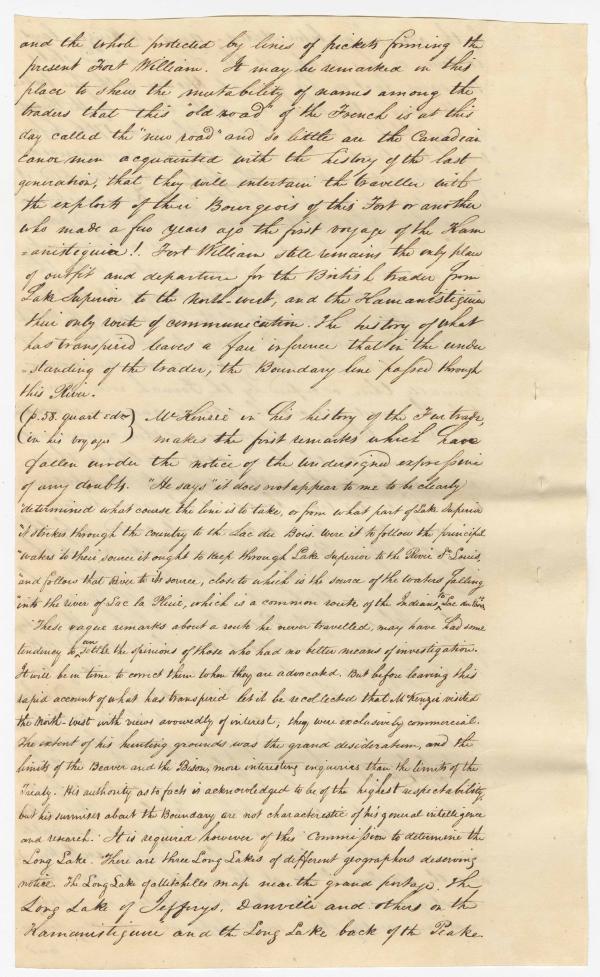 and the whole protected by lines of pickets forming the
present Fort William. It may be remarked in this
place to shew the mutability of names among the
traders that this "old road" of the French is at this
day called the "new road" and so little are the Canadian
canoe men acquainted with the history of the last
generation, that they will entertain the traveller with
the exploits of their Bourgeois of this Fort or another
who made a few years ago the first voyage of the Kam
=anistiguia! Fort William still remains the only place
of outfit and departure for the British trader from
Lake Superior to the North-west, and the Kamanistiguia
their only route of communication. The history of what
has transpired leaves a fair inference that in the under
-standing of the trader, the Boundary line passed through
this River.
(p. 58. quart edn) McKenzie in his history of the Fur trade,
(in his voyage) makes the first remarks which have
fallen under the notice of the undersigned expressive
of any doubts. "He says "it does not appear to me to be clearly
"determined what course the line is to take, or from what part of Lake Superior
"it strikes through the country to the Lac du Bois. were it to follow the principal
"waters to their source it ought to keep through Lake Superior to the River St Louis,
"and follow that River to its source, close to which is the source of the waters falling
"into the river of Lac la Pluie, which is a common route of the Indians to Lac du Bois.
These vague remarks about a route he never travelled, may have had some
tendency to unsettle the opinions of those who had no better means of investigation.
It will be in time to correct them when they are advocated. But before leaving this
rapid account of what has transpired let it be recollected that McKenzie visited
the North-west with views avowedly of interest, they were exclusively commercial.
The extent of his hunting grounds was the grand desideratum, and the
limits of the Beaver and the Bison, more interesting enquiries than the limits of the
Treaty. His authority as to facts is acknowledged to be of the highest respectability,
but his surmises about the Boundary are not characterestic of his general intelligence
and research. It is required however of this Commission to determine the
Long Lake. There are three Long Lakes of different geographers deserving
notice. The Long Lake of Mitchells map near the grand portage. The
Long Lake of Jefferys, Danville and others on the
Kamanistiguia and the Long Lake back of the Peake